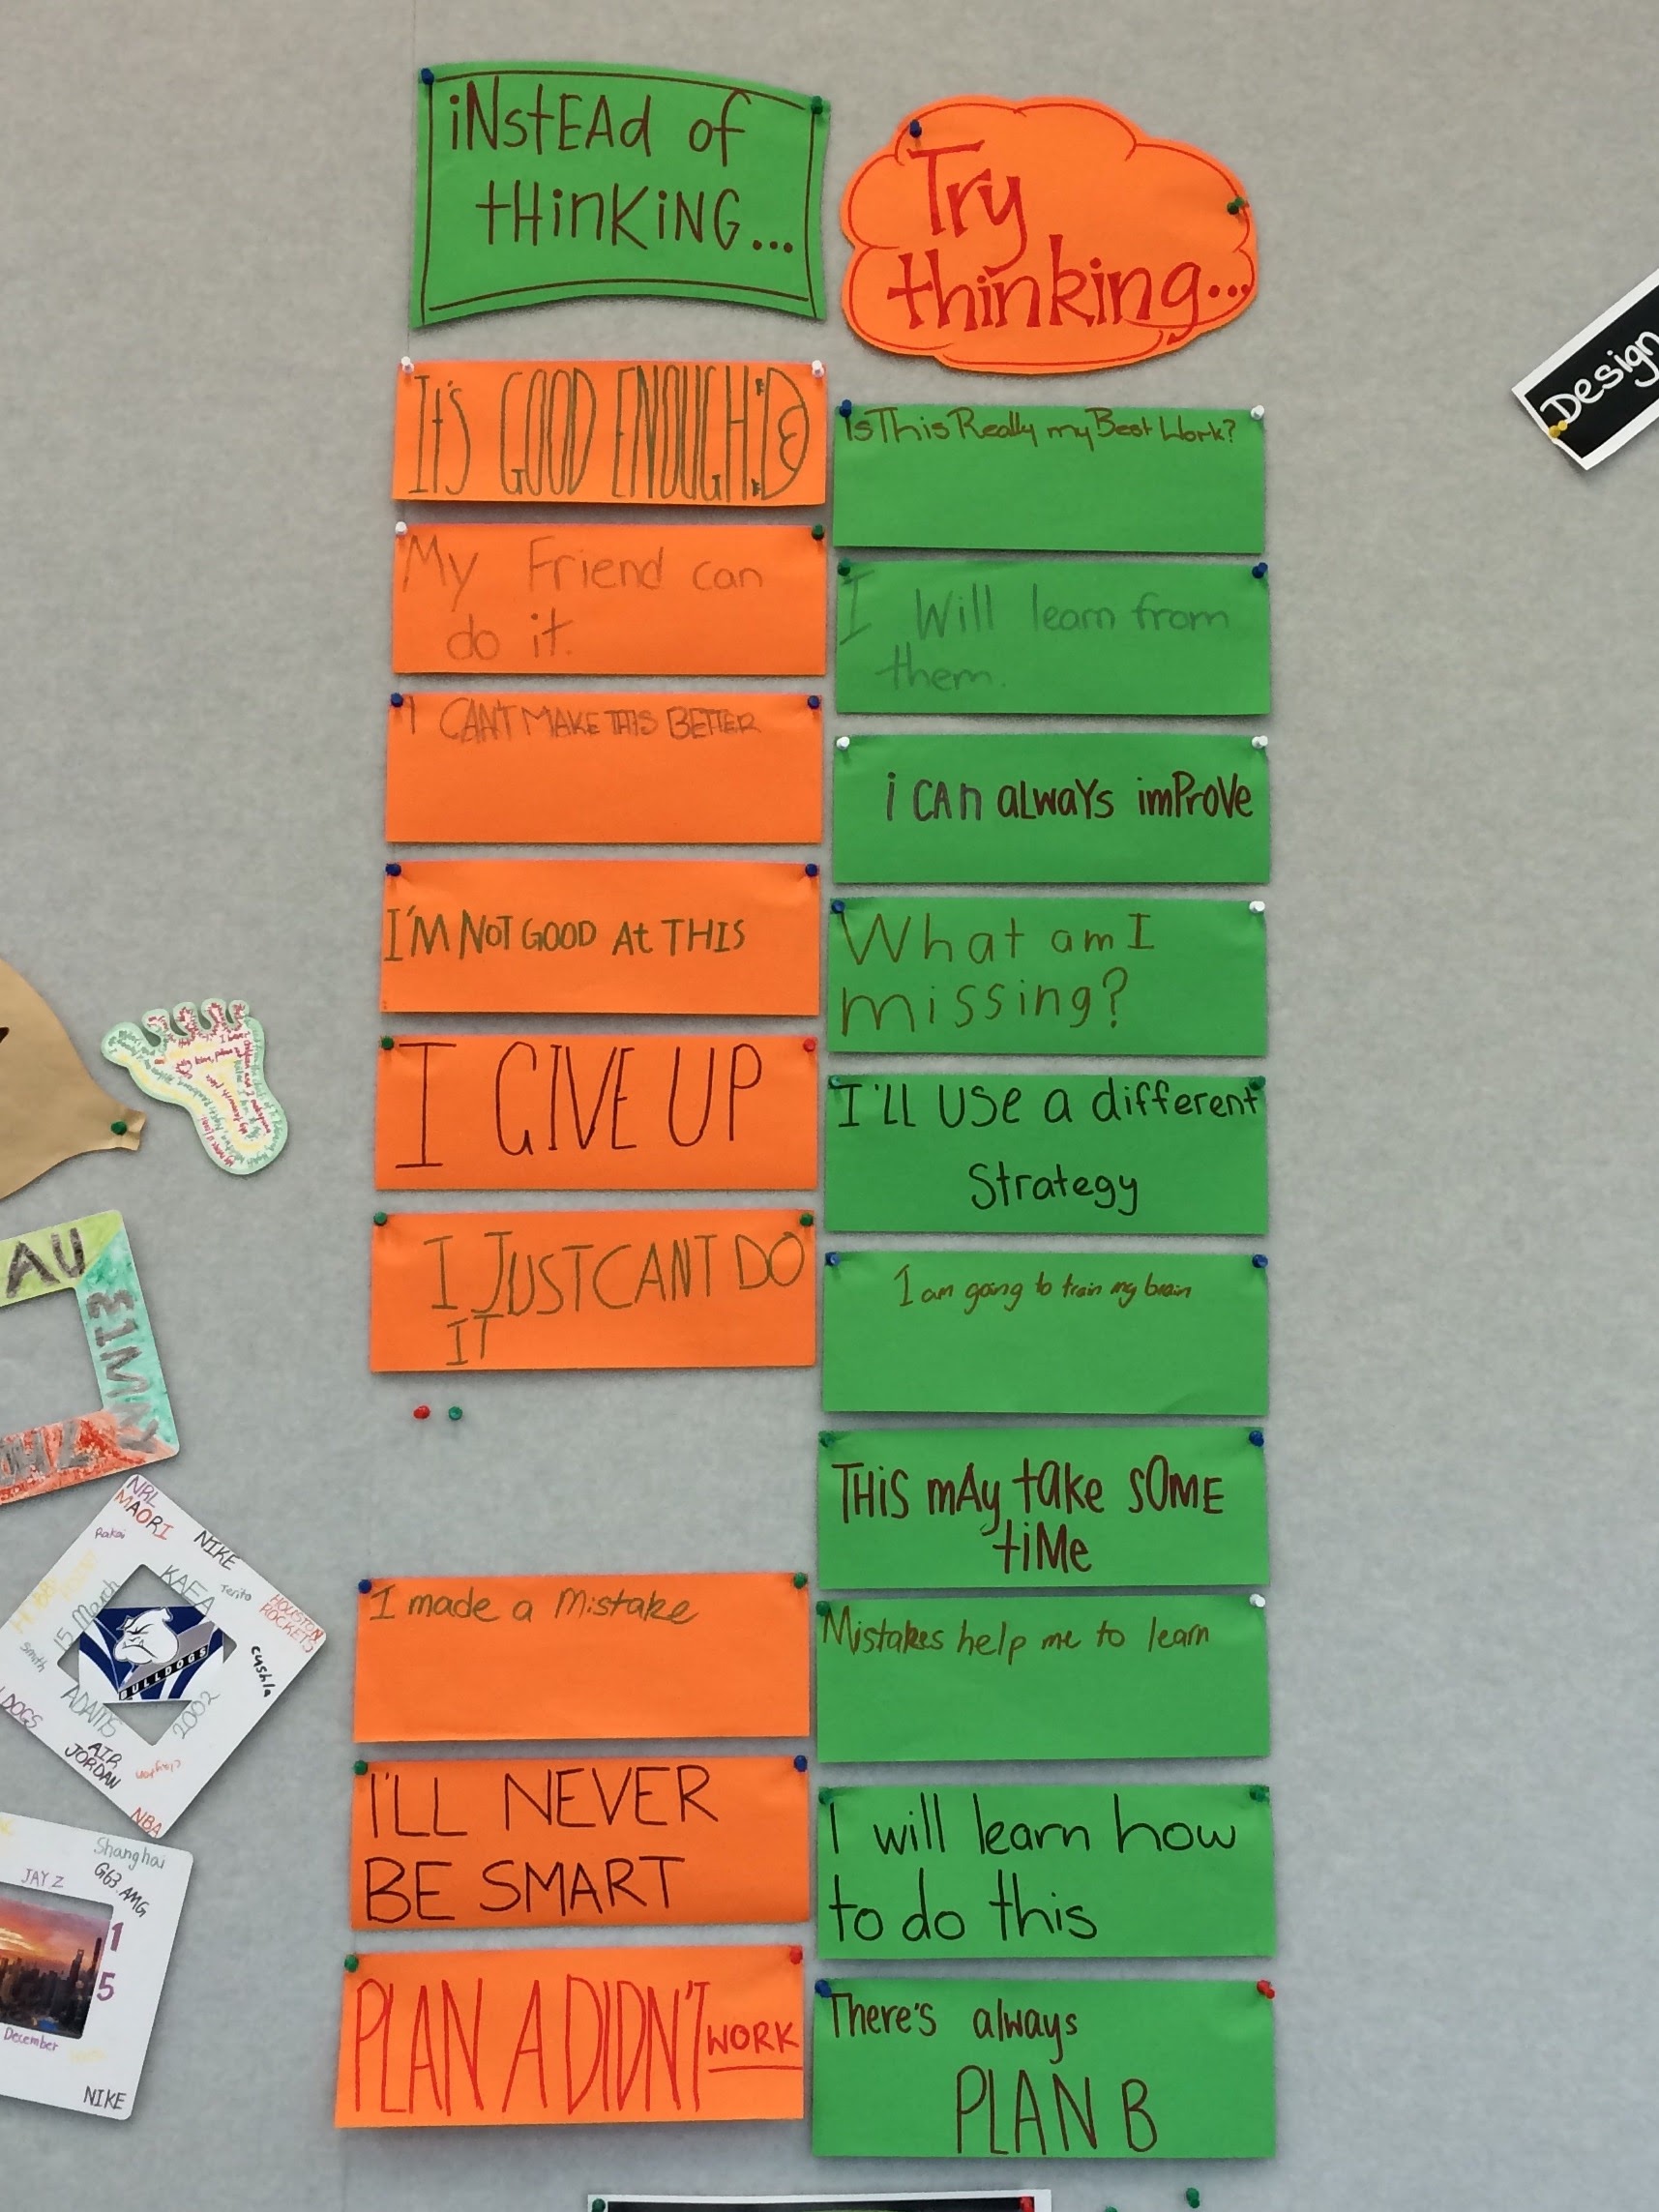 iNstEAd of
tHinKiNG...
Try
thinking...
It's GOOD ENOUGH!
Is This Really my Best Work?
My Friend can
do it.
I Will learn from
them.
I CAN'T MAKE THIS BETTER
i CAn aLwaYs imProVe
I'M NOT GOOD At THIS
What am I
missing?
I GIVE UP
I'LL USe a different
Strategy
I JUST CANT DO
IT
I am going to train my brain
THiS mAy take SOME
tiMe
I made a Mistake
Mistakes help me to learn
I'LL NEVER
BE SMART
I will learn how
to do this
PLAN A DIDN'T WORK
There's always
PLAN B
Design
AU
NRL
MAORI
Rakai
NIKE
KAEA
Terito
HOUSTON
ROCKETS
15 March
smith
cushla
BULLDOGS
ADAMS
2002
DOGS
AIR
JORDAN
clayton
NBA
Shanghai
G63 AMG
JAY Z
1
5
December
NIKE